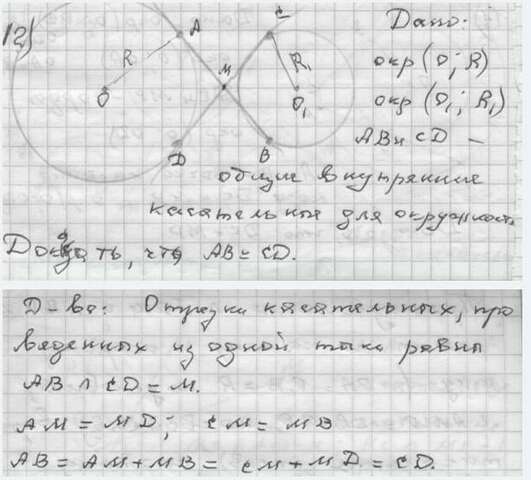 12)
A
C
Дано:
R
M
R₁
окр (O; R)
O
O₁
окр (O₁; R₁)
D
B
AB и CD —
общие внутренние
касательные для окружност
Доказать, что AB = CD.
Д-во: Отрезки касательных, про
веденных из одной точки равны
AB ∩ CD = M.
AM = MD; CM = MB
AB = AM + MB = CM + MD = CD.